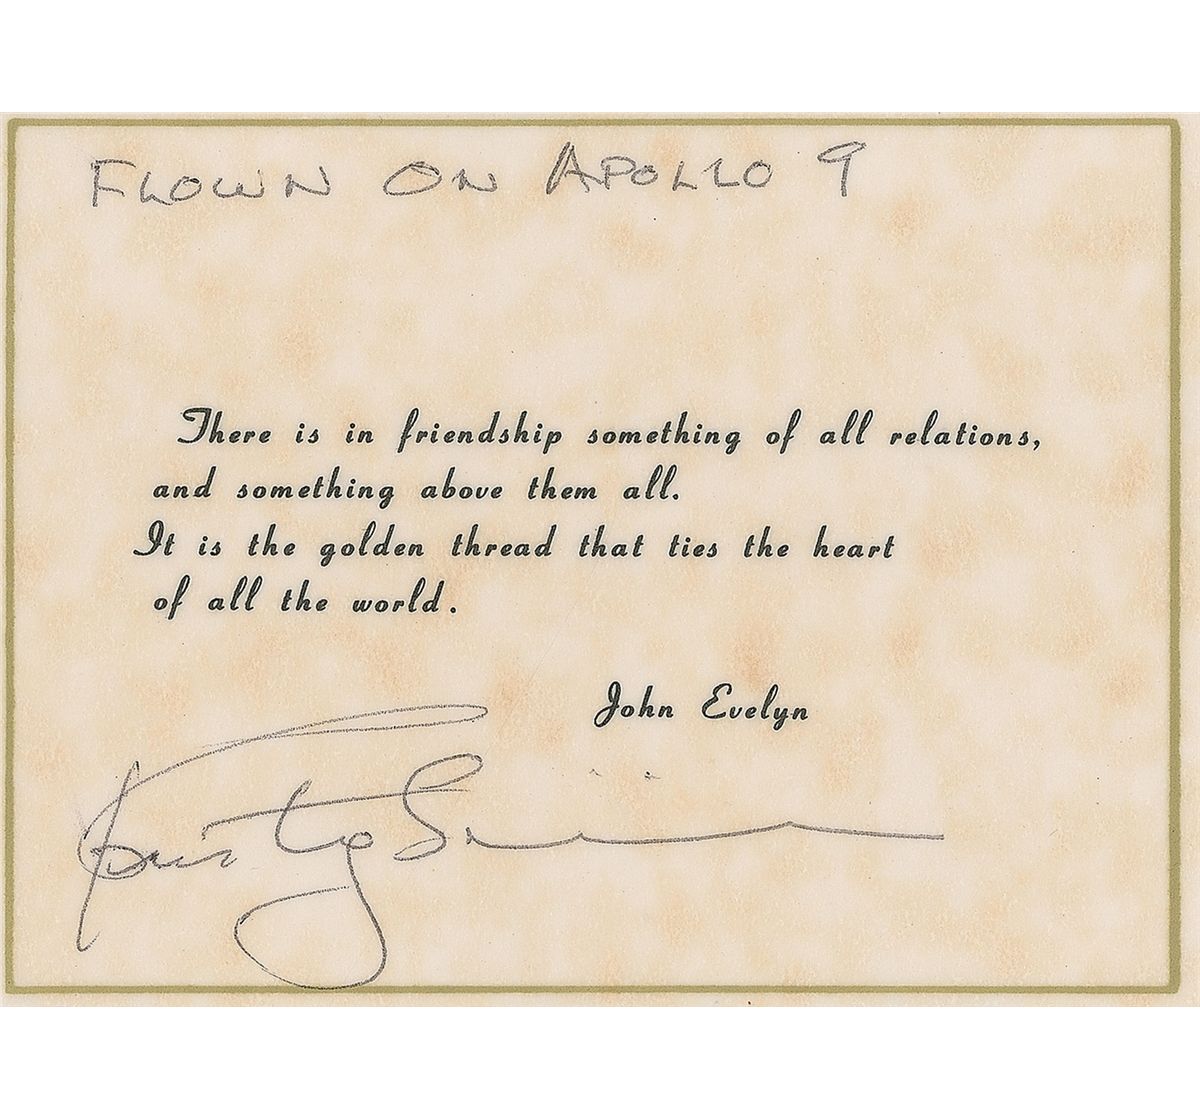 FLOWN ON APOLLO 9
There is in friendship something of all relations,
and something above them all.
It is the golden thread that ties the heart
of all the world.
John Evelyn